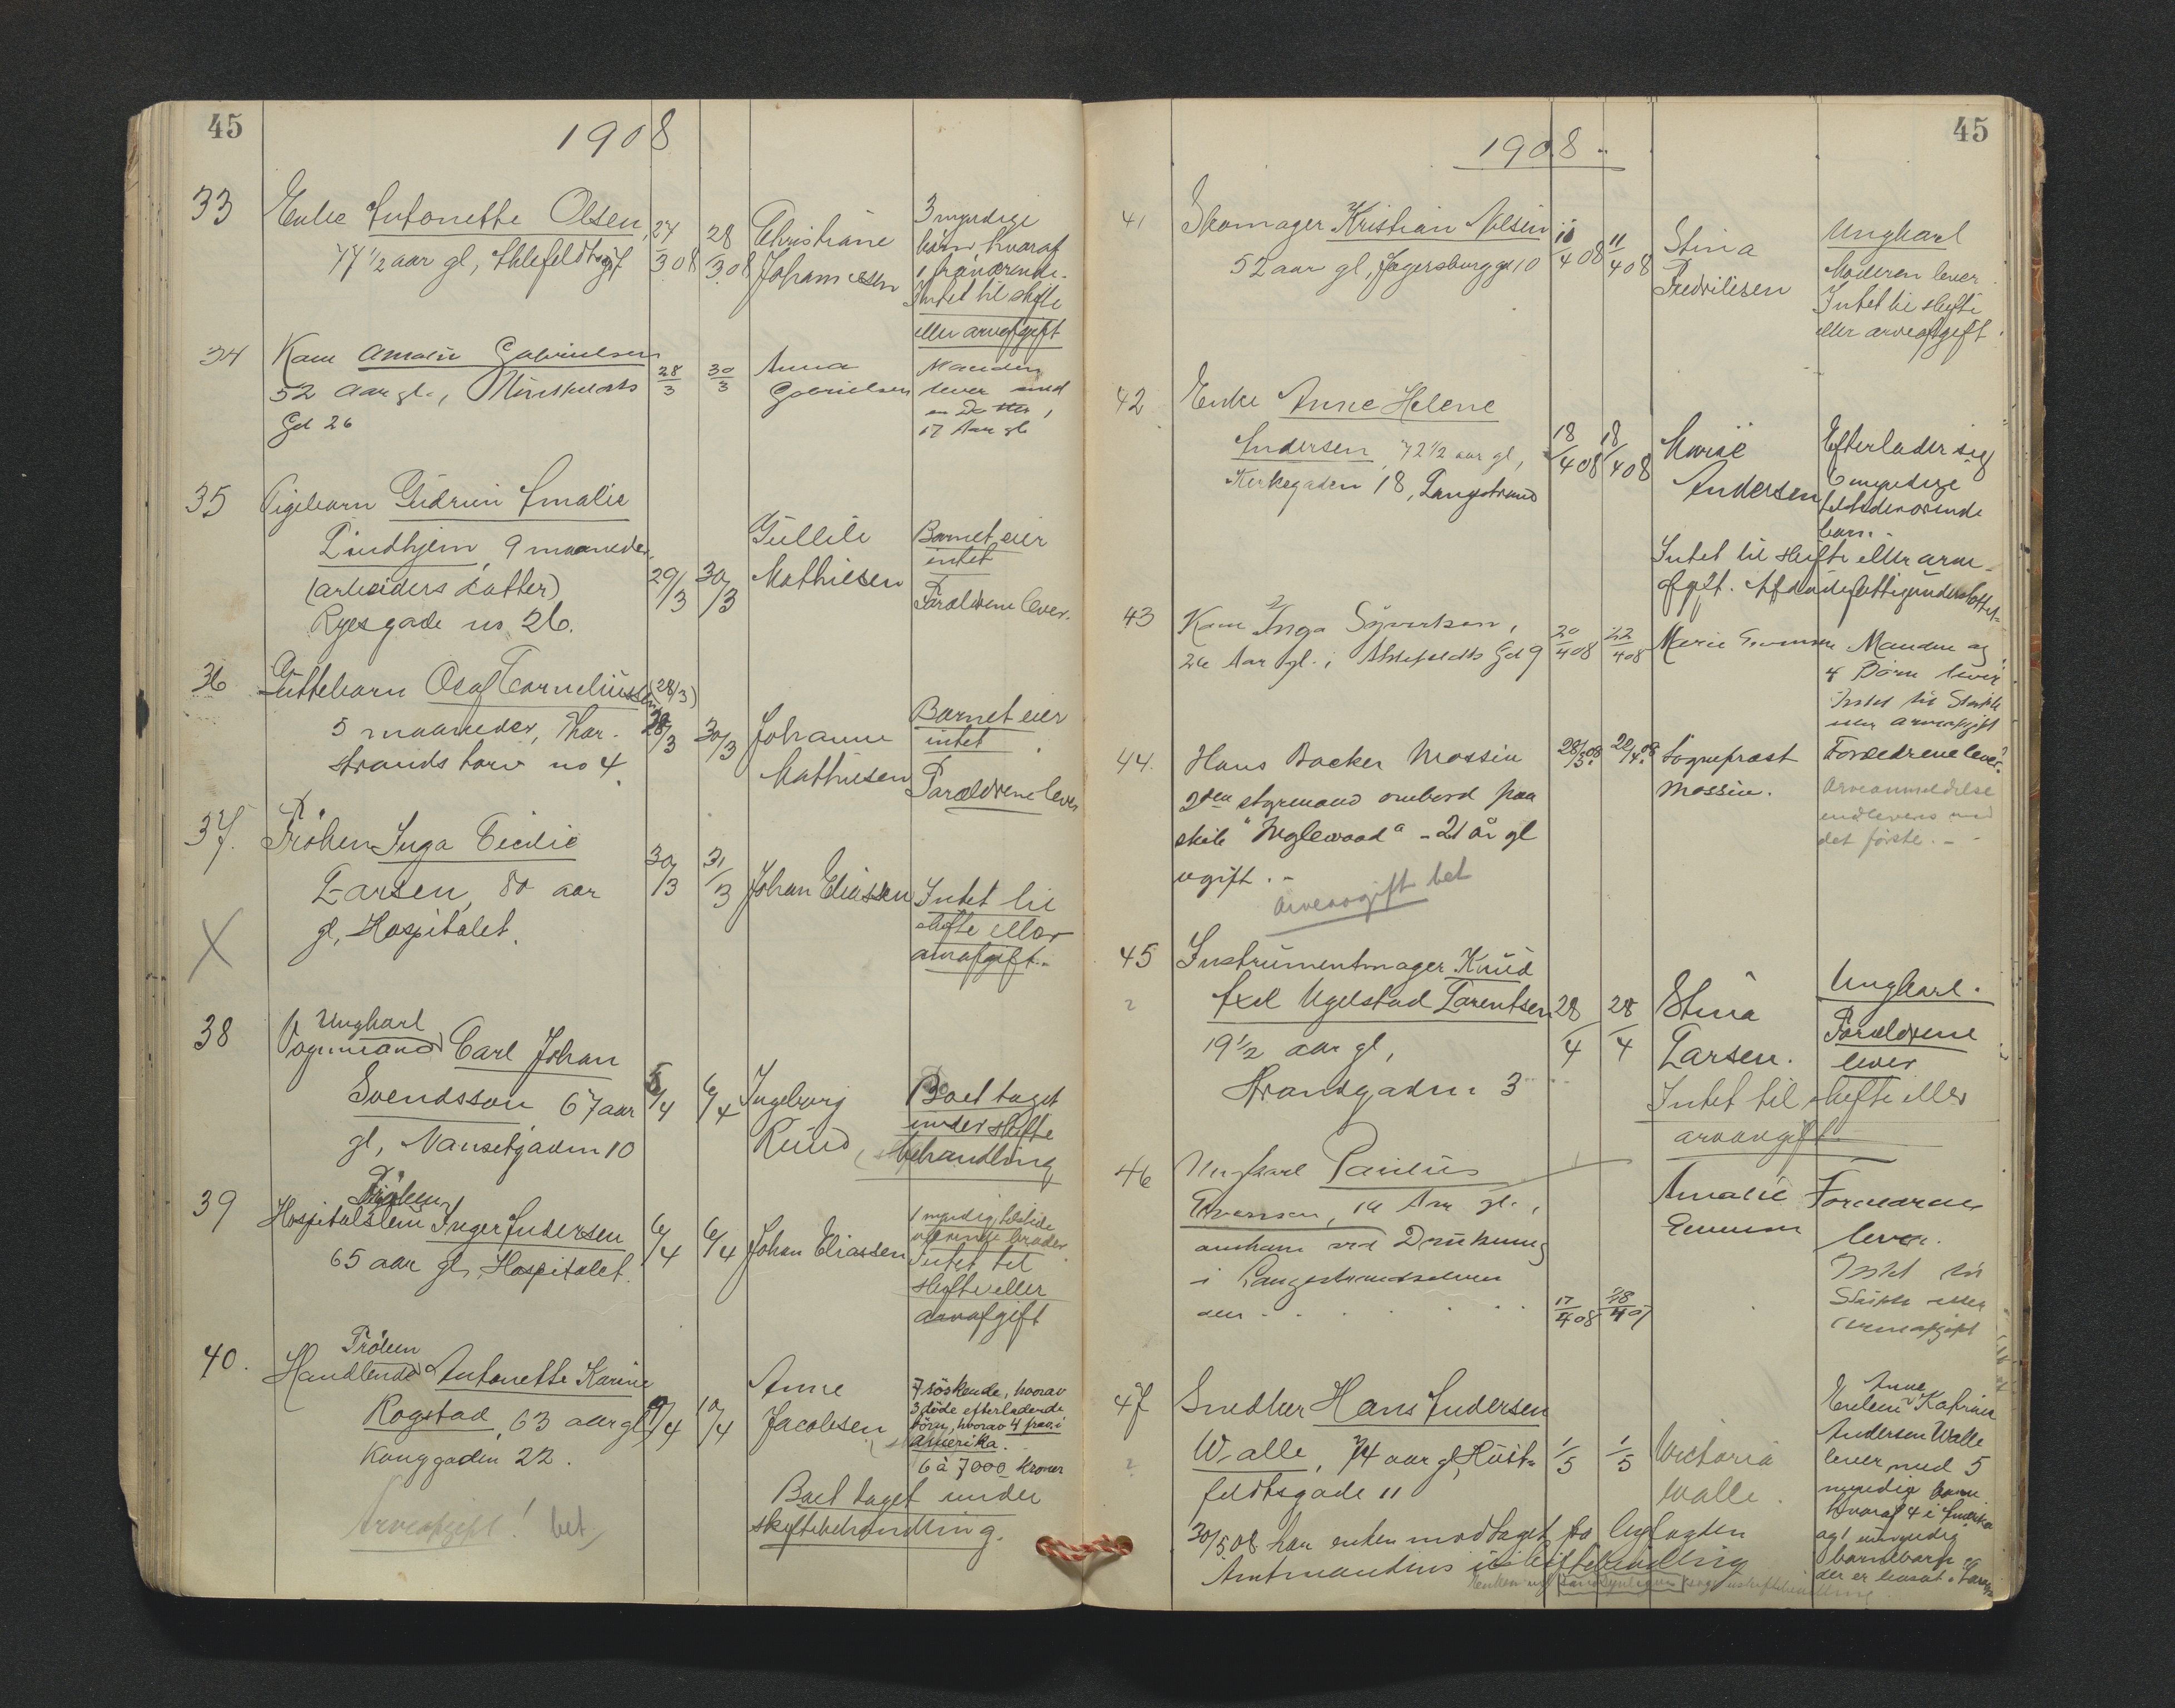 45
1908
33 Enke Antonette Olsen, 27/3 08 28/3 08 Christiane 3 myndige
77 1/2 aar gl, Ahlefeldtsgt Johannesen börn, hvoraf
1 fraværende.
Intet til skifte
eller arveafgift
34 Kone Amalie Gabrielsen 28/3 30/3 Anna Manden
52 Aar gl., Gabrielsen lever med
Gd 26 en Datter,
17 Aar gl
35 Pigebarn Gudrun Amalie
Lindhjem, 9 maaneder Gullik Barnet eier
(arbeiders datter) 29/3 30/3 Mathiesen intet
Ryesgade no 26. Forældrene lever.
36 Guttebarn Olaf Corneliussen (28/3)
5 maaneder, Thor- 28/3 30/3 Johanne Barnet eier
strands torv no 4. Mathiesen intet.
Forældrene lever
37. Fröken Inga Cicilie
Larsen, 80 aar 30/3 31/3 Johan Eliassen Intet til
gl, Hospitalet. skifte eller
X arveafgift.
38 Ungkarl
Vognmand Carl Johan
Svendsson 67 aar 5/4 6/4 Ingeborg Boet taget
gl, Nansetgaden 10 Ruud, under skifte
behandling
39 Fröken
Hospitalslem Inger Andersen 6/4 6/4 Johan Eliassen 1 myndig tilstede
65 aar gl, Hospitalet. værende broder
Intet til
skifte eller
arveafgift
40. Fröken
Handlende Antonette Karine Anne 7 söskende, hvorav
Rogstad, 63 aar gl, 9/4 10/4 Jacobsen 3 döde efterladende
Konggaden 22. börn, hvorav 4 frav. i
Amerika.
6 à 7000 kroner
Arveafgift! bet. Boet taget under
skiftebehandling.
45
1908.
41 Skomager Kristian Nilsen 10/4 08 11/4 08 Stina Ungkarl
52 aar gl, Jegersborggt 10 Fredriksen Moderen lever
Intet til skifte
eller arveafgift.
42 Enke Anne Helene
Andersen, 72 1/2 aar gl, 18/4 08 18/4 08 Marie Efterlader sig
Kirkegaden 18, Langestrand Andersen 6 myndige
tilstedeværende
barn.
Intet til skifte eller arve-
afgift. Afdöde fattigunderstöttet.
43 Kone Inga Syvertsen, 20/4 08 22/4 08 Marie Manden og
26 Aar gl., Ahlefeldts Gd 9 4 Börn lever
Intet til Skifte
eller arveafgift
44. Hans Backer Mossin 28/3 08. 22/4 08. Sogneprest Forældrene lever.
2den styrmand ombord paa Mossin. Arveanmeldelse
skib "Inglewood" - 21 år gl indleveres med
ugift. - det förste. -
arveavgift bet
45 Instrumentmager Knud
Axel Ugelstad Larentsen 28/4 28/4 Stina Ungkarl.
19 1/2 aar gl, Larsen. Forældrene
Strandgaden 3 lever
Intet til skifte eller
arveavgift
46 Ungkarl Paulus Amalie Forældrene
Evensen, 19 Aar gl., lever.
omkom ved Drukning Intet til
i Langestrandselven Skifte eller
den 17/4 08 28/4 07 arveafgift
47 Smedker Hans Andersen Enken Anne Katrine
Walle, 74 aar gl, Huit- 1/5 1/5 Victoria Andersen Walle
feldtsgade 11 Walle. lever med 5
myndige barn
hvoraf 4 i Amerika
30/5 08 har enken modtaget fra byfogden og 1 umyndig
Amtmandens uskiftebevilling barnebarn